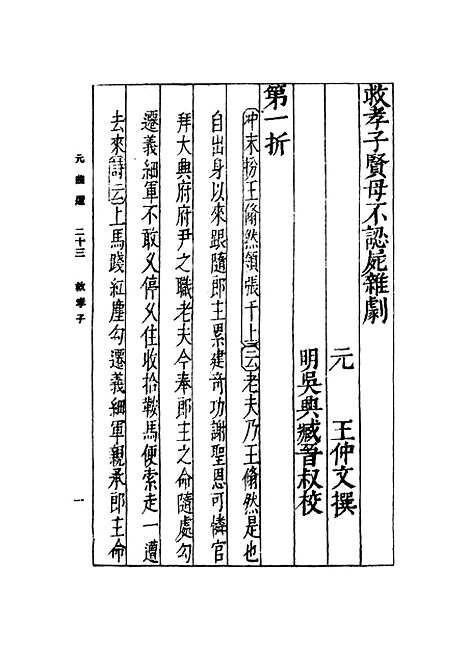 救孝子賢母不認屍雜劇
元 王仲文撰
明吳興臧晉叔校
第一折
冲末扮王翛然領張千上云老夫乃王翛然是也
自出身以來跟隨郎主累建竒功謝聖恩可憐官
拜大興府府尹之職老夫今奉郎主之命隨處勾
遷義細軍不敢久停久住收拾鞍馬便索走一遭
去來詩云上馬踐紅塵勾遷義細軍親承郎主命
元曲選 二十三 救孝子 一